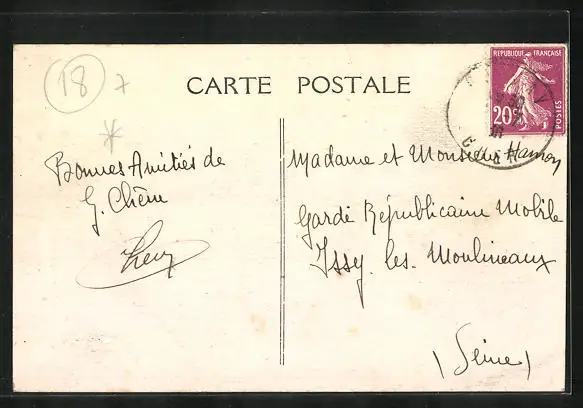 18 7
CARTE POSTALE
REPUBLIQUE FRANÇAISE
20c
POSTES
Bonnes Amitiés de
G. Chêne
Madame et Monsieur Hamon
Garde Républicaine Mobile
Issy. les. Moulineaux
(Seine)